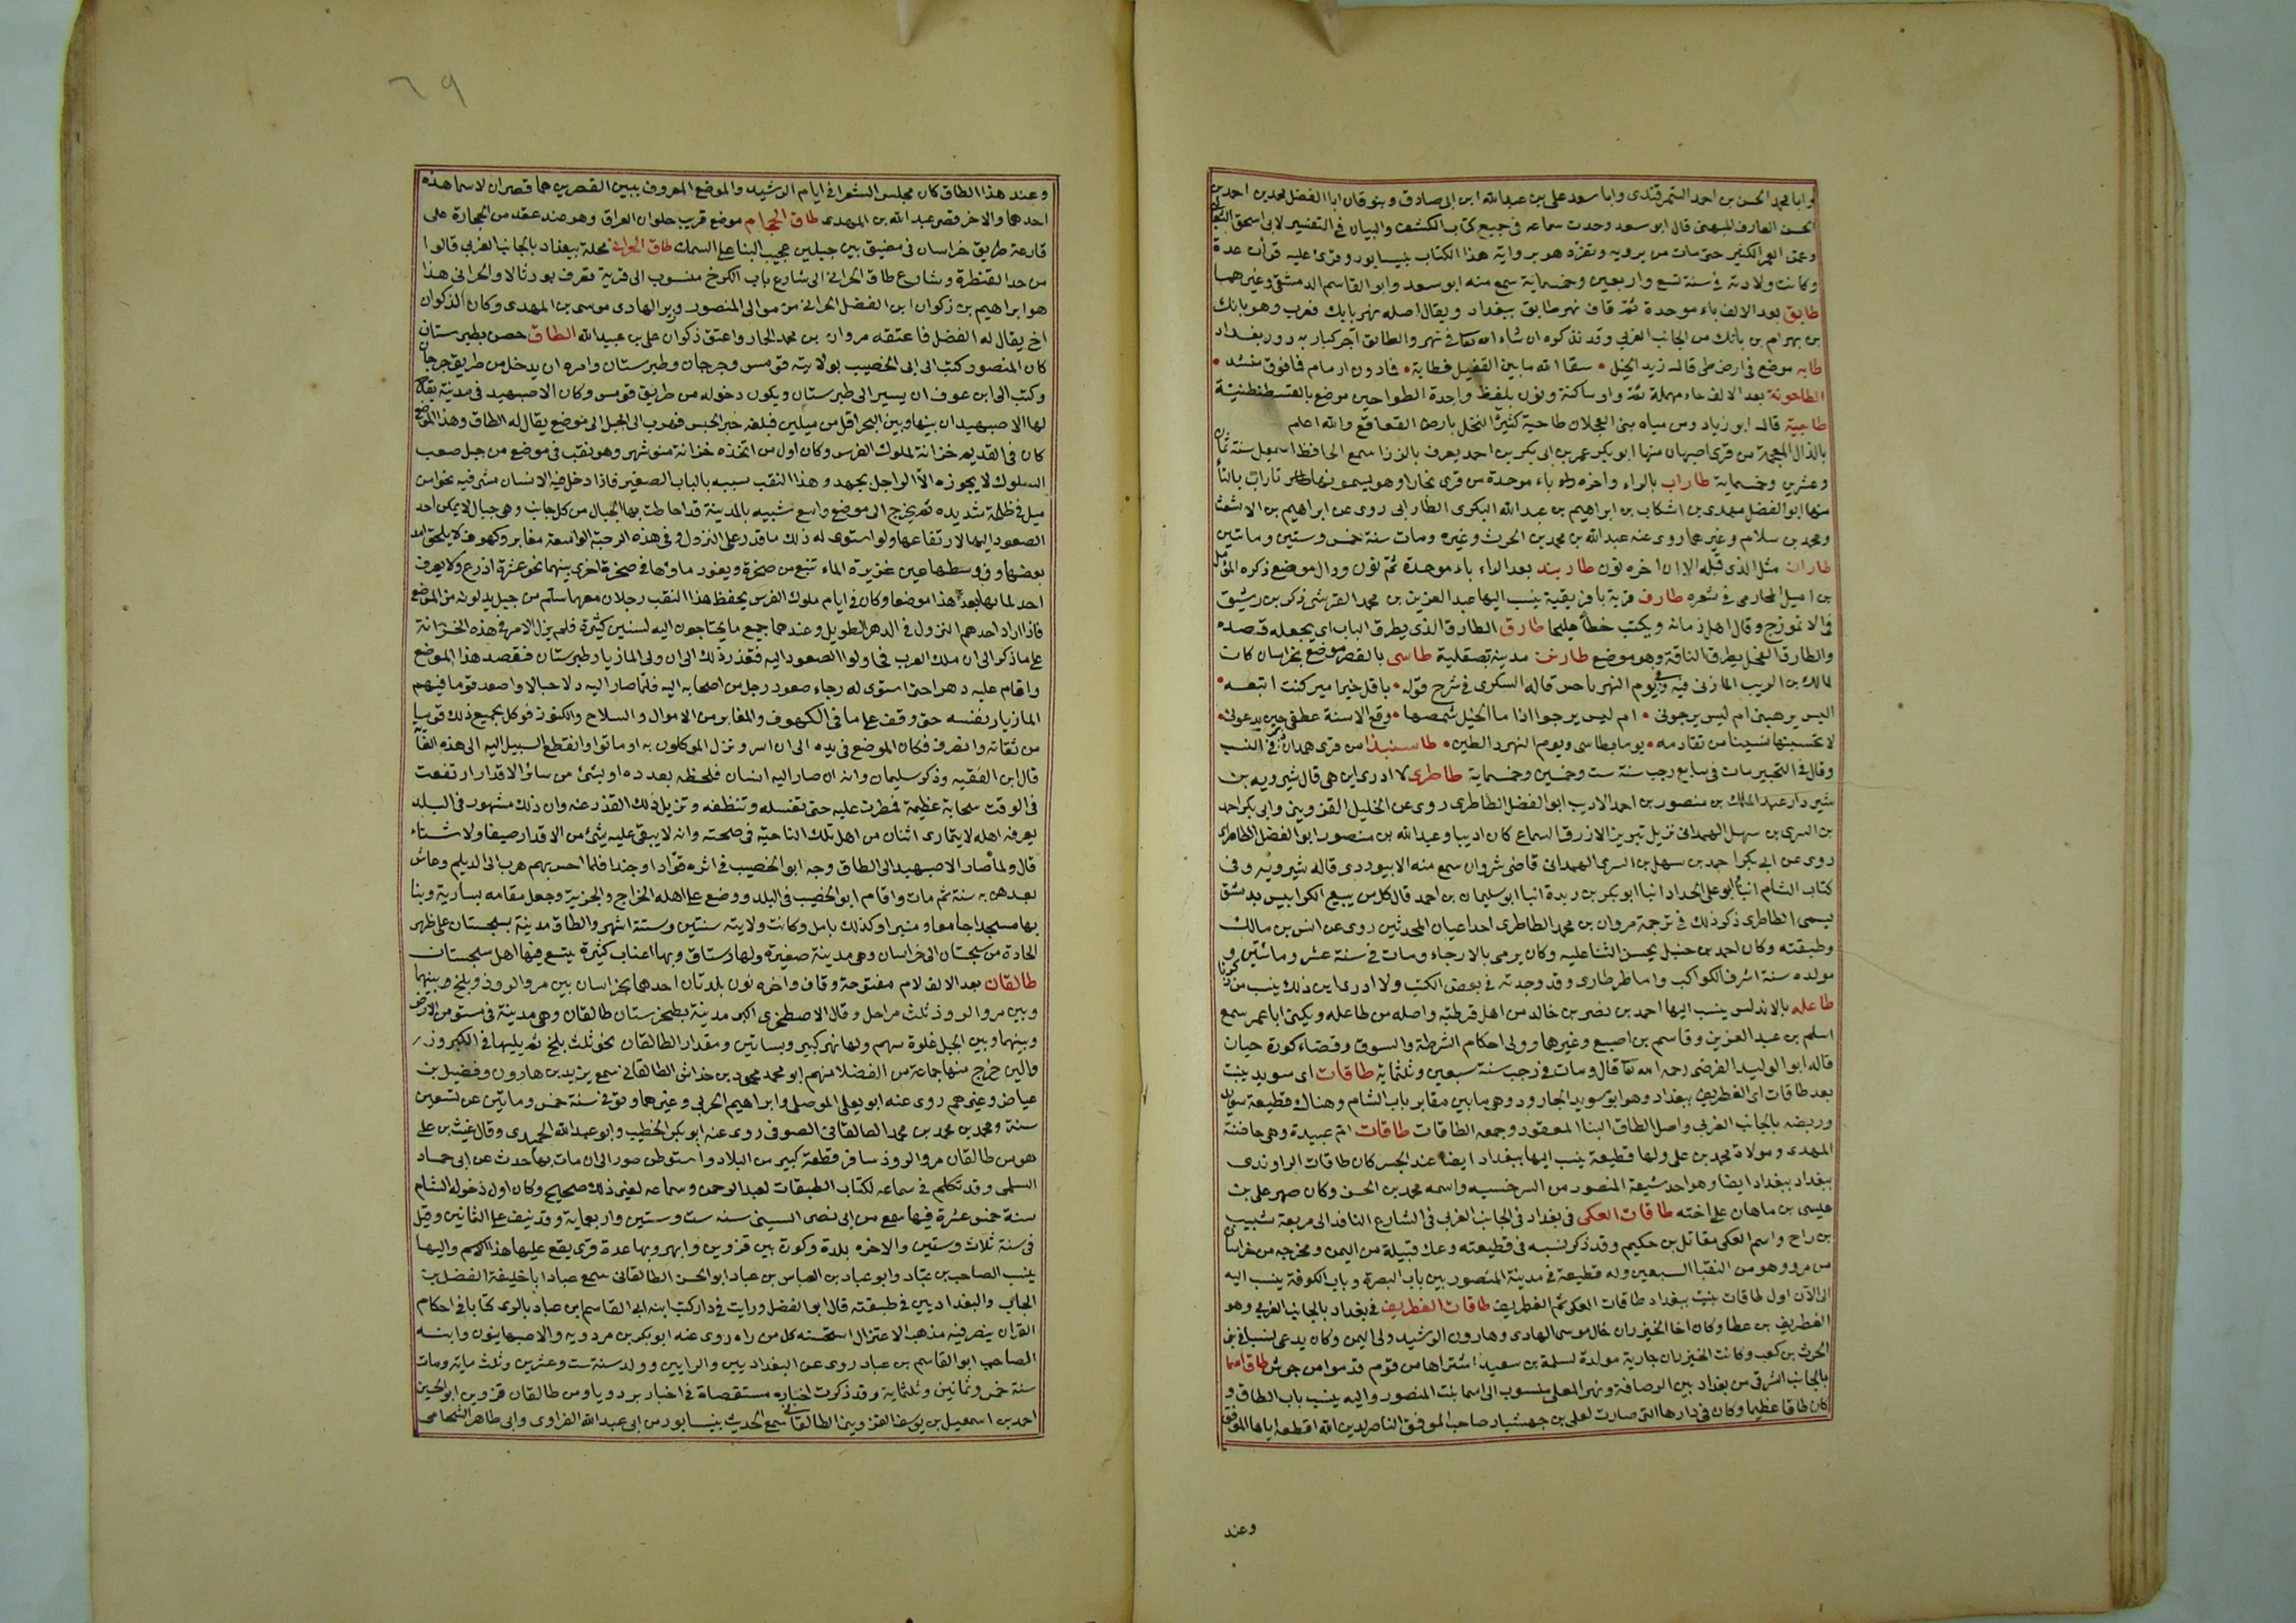 وابا محمد الحسن بن احمد السمرقندى وابا سعد على بن عبدالله ابن ابى صادق وبنوقان ابا الفضل محمد بن احمد بن
الحسن العارف الميهنى قال ابو سعد وحدت سماعه فى جميع كتاب الكشف والبيان فى التفسير لابى اسحق الثعلبى
وعمّر العمر الكثير حتى مات من يرويه وتفرّد هو برواية هذا الكتاب بنيسابور وقرئ عليه قرأت عدة
وكانت ولادته فى سنة تسع واربعين وخمسماية سمع منه ابو سعد وابو القاسم الدمشقى وغيرهما
طابق بعد الالف باء موحدة ثمّ قاف نهر طابق ببغداد ويقال اصله نهر بابك فعرب وهو بابك
بن بهرام بن بابك من الجانب الغربى وقد نذكره ان شاء الله تعالى فى نهر والطابق آجر كبار به دور بغداد
طابه موضع فى ارض طى قال زيد الخيل • سقا الله ما بين القفيل فطابة • فمادون ارمام فمافوق منشد •
الطاحونة بعد الالف حاء مهملة ثمّ واو ساكنة ونون بلفظ واحدة الطواحين موضع بالقسطنطنيّة
طاحية قال ابو زياد ومن مياه بنى العجلان طاحية كثيرة النخل بارض القعاقع والله اعلم
بالذال المعجمة من قرى اصبهان منها ابو بكر عمر بن ابى بكر بن احمد يعرف بالزز سمع الحافظ اسمعيل سنة ثمان
وعشرين وخمسماية طاراب بالراء واخره باء موحدة من قرى بخارا وهو يسمونها تاراب بالتاء
منها ابو الفضل مهدى بن اشكاب بن ابراهيم بن عبدالله البكرى الطارابى روى عن ابراهيم بن الاشعث
ومحمد بن سلام وغيرهما روى عنه عبدالله بن محمد بن الحرث وغيره ومات سنة خمس وستين وماتين
طاران مثل الذى قبله الا ان اخره نون طاربند بعد الراء باء موحدة ثم نون ودال موضع ذكره المؤمل
بن اميل المحاربى فى شعره طارف قرية بافريقية ينسب اليها عبد العزيز بن محمد القرشى ذكره بن رشيق
فى الانموزج وقال اهل زمانه ويكتب خطاً مليحا طارق الطارق الذى يطرق الباب اى يجعله قصده
والطارق الفحل يطرق الناقة وهو موضع طارنت مدينة بصقلية طاسى بالقصر موضع بخراسان كانت
لمالك بن الريب المازنى فيه وفى يوم النهر باحس قاله السكرى فى شرح قوله • ياقل خير امير كنت اتبعه •
اليس يرهبنى ام ليس يرجونى • ام ليس يرجو اذا ما الخيل شمصها • وقع الاسنة عطفى حين يدعونى •
لا تحسبنها نسينا من تقادمه • يوما بطاسى ويوم النهر ذا الطين • طاسبندا من قرى همدان فى النسب
وقال فى التحبير مات فى سابع رجب سنة ست وخمسين وخمسماية طاطرى لا ادرى اين هى قال شيرويه بن
شيردار عبد الملك بن منصور بن احمد الاديب ابو الفضل الطاطرى روى عن الخليل القزوينى وابى بكر احمد
بن السرى بن سهل الهمدانى نزيل تبريز الازرق السماع كان اديبا وعبد الله بن منصور ابو الفضل الطاطرى
روى عن ابى بكر احمد بن سهل بن السرى الهمدانى قاضى شروان سمع منه الابيوردى قاله شيرويه وفى
كتاب الشام انبأ ابو على الحداد انبا ابو بكر بن ريدة انبا ابو سليمان بن احمد قال كل من يبيع الكرابيس بدمشق
يسمى الطاطرى ذكر ذلك فى ترجمة مروان بن محمد الطاطرى احد اعيان المحدثين روى عن انس بن مالك
وطبقته وكان احمد بن حنبل يحسن الثنا عليه وكان يرمى بالارجاء ومات فى سنة عشر وماتين و
مولده سنة اشرف الكواكب واما طرطارى وقد وجدته فى بعض الكتب ولا ادرى اين ذلك ينسب من
طاعله بالاندلس ينسب اليها احمد بن نصر بن خالد من اهل قرطبة واصله من طاعله ويكنى ابا عمر سمع
اسلم بن عبد العزيز وقاسم بن اصبع وغيرهما وولى احكام الشرطة والسوق وقضاء كورة جيان
قاله ابو الوليد الفرضى رحمه الله تعالى قال ومات فى رجب سنة سبعين وثلثماية طاقات ابى سويد بنيت
بعد طاقات الغطريف ببغداد وهو ابو سويد الجارود وهى ما بين مقابر باب الشام وهناك قطيعة سويد
وربضه بالجانب الغربى واصل الطاق البنا المعقود وجمعه الطاقات طاقات ام عبيدة وهى حاضنة
المهدى ومولاة محمد بن على ولها قطيعة ينسب اليها ببغداد ايضا عند الجسر كان طاقات الراوندى
ببغداد ببغداد ايضا وهو احد شيعة المنصور من السرخسيه واسمه محمد بن الحسن وكان صهر على بن
عيسى بن ماهان على اخته طاقات العكى فى بغداد فى الجانب الغربى فى الشارع النافذ الى مربعة شبيب
بن راح واسم العكى مقاتل بن حكيم وقد ذكر نسبه فى قطيعته وعك قبيلة من اليمن ومخرجه من خراسان
من مرو وهو من النقبا السبعين وله قطيعة فى مدينة المنصور بين باب البصرة وباب الكوفة ينسب اليه
الى الآن اول طاقات بنيت ببغداد طاقات العكى ثم الغطريف طاقات الغطريف فى بغداد بالجانب الغربى وهو
الغطريف بن عطا وكان اخا الخيزران خال موسى الهادى وهارون الرشيد ولى اليمن وكان يدعى نسبا فى بنى
الحرث بن كعب وكانت الخيزران جارية مولدة لسلمة بن سعيد اشتراها من قوم قدموا من جرش طاق اسما
بالجانب الشرقى من بغداد بين الرصافة ونهر المعلى منسوب الى اسما بنت المنصور واليه ينسب باب الطاق و
كان طاقا عظيما وكان فى دارها التى صارت لعلى بن جهشيار صاحب الموفق الناصر لدين الله اقطعه اياها الموفق
وعند
٦٩
وعند هذا الطاق كان مجلس الشعرا فى ايام الرشيد والموضع المعروف ببين القصرين هما قصران لاسما هذه
احدهما والاخر قصر عبد الله بن المهدى طاق الحجام موضع قريب حلوان العراق وهو عند عقد من الحجارة على
قارعة طريق خراسان فى مضيق بين جبلين عجيب البنا على السمك طاق الحرانى محلة ببغداد بالجانب الغربى قالوا
من حد القنطرة وشارع طاق الحرانى الى شارع باب الكرخ منسوب الى قرية تعرف بورثالا والحرانى هذا
هو ابراهيم بن زكوان ابن الفضل الحرانى من موالى المنصور وزير الهادى موسى بن المهدى وكان لذكوان
اخ يقال له الفضل فاعتقه مروان بن محمد الحمار واعتق ذكوان على بن عبيد الله الطاق حصن بطبرستان
كان المنصور كتب الى ابى الخصيب بولايته قومس وجرجان وطبرستان وامره ان يدخل من طريق جرجان
وكتب الى ابن عوف ان يسير الى طبرستان ويكون دخوله من طريق قومس وكان الاصبهبد فى مدينة يقال
لها الاصبهبدان بينها وبين البحر اقل من ميلين فبلغه خبر الجيش فهرب الى الجبل الى موضع يقال له الطاق وهذا الموضع
كان فى القديم خزانة لملوك الفرس وكان اول من اتخذه خزانة منوشهر وهو نقب فى موضع من جبل صعب
السلوك لا يجوزه الّا الراجل بجهد وهذا النقب شبيه بالباب الصغير فاذا دخل فيه الانسان مشى فيه نحوا من
ميل فى ظلمة شديده ثم يخرج الى موضع واسع شبيه بالمدينة قد احاطت بها الجبال من كل جانب وهى جبال لا يمكن احد
الصعود اليها لارتفاعها ولو استوى له ذلك ما قدر على النزول وفى هذه الرحبة الواسعة مغاير وكهوف لا يلحق امد
بعضها وفى وسطها عين غزيرة الماء تنبع من صخرة ويغور ماؤها فى صخرة اخرى بينهما نحو عشرة اذرع ولا يعرف
احد لمائها بعد هذا موضعا وكان فى ايام ملوك الفرس يحفظ هذا النقب رجلان معهما سلم من حبل يدلونه من الموضع
فاذا اراد احدهم النزول فى الدهر الطويل وعندهما جميع ما يحتاجون اليه لسنين كثيرة فلم يزل الامر فى هذه الخزانة
على ما ذكر الى ان ملك العرب فحاولوا الصعود اليه فتعذر ذلك الى ان ولى المازيار طبرستان فقصد هذا الموضع
واقام عليه دهرا حتى استوى له رجاء صعود رجل من اصحابه اليه فلمّا صار اليه دلا حبالا واصعد قوما فيهم
المازيار بنفسه حتى وقف على ما فى الكهوف والمغاير من الاموال والسلاح والكنوز فوكل بجميع ذلك قوما
من ثقاته وانصرف فكان الموضع فى يده الى ان اسر ونزل الموكلون به او ماتوا وانقطع السبيل اليه الى هذه الغاية
قال ابن الفقيه وذكر سليمان وانه ان صار اليه انسان فلحظه بعد ده او بشئ من سائر الاقدار ارتفعت
فى الوقت سحابة عظيمة فمطرت عليه حتى تغسله وتنظفه وتزيل ذلك القذر عنه وان ذلك مشهور فى البلد
يعرفه اهله لا يتمارى اثنان من اهل تلك الناحية فى صحته وانه لا يبقى عليه شئ من الاقدار صيفا ولا شتاء
قال ولما صار الاصبهبد الى الطاق وجه ابو الخصيب فى اثره قوّادا وجندا فلما احس بهم هرب الى الديلم وعاش
بعد هربه سنة ثم مات واقام ابو الخصيب فى البلد ووضع على اهله الخراج والجزية وجعل مقامه بسارية وبنا
بها مسجدا جامعا ومنبرا وكذلك بامل وكانت ولايته سنتين وستة اشهر والطاق مدينة بسجستان على ظهر
الجادة من سجستان الى خراسان وهى مدينة صغيرة ولها رستاق وبها اعناب كثيرة يتسع فيها اهل سجستان
طالقان بعد الالف لام مفتوحة وقاف واخره نون بلدتان احدهما بخراسان بين مرو الروذ وبلخ وبينهما
وبين مرو الروذ ثلث مراحل وقال الاصطخرى اكبر مدينة بطخرستان طالقان وهى مدينة فى مستو من الارض
وبينهما وبين الجبل غلوة سهم ولها نهر كبير وبساتين ومقدار الطالقان نحو ثلث بلخ ثم يليها فى الكبر وز
والين خرج منها جماعة من الفضلا منهم ابو محمد محمود بن خداش الطالقانى سمع يزيد بن هارون وفضيل بن
عياض وغيرهم روى عنه ابو يعلى الموصلى وابراهيم الحربى وغيرهما وتوفى سنة خمس وماتين عن تسعين
سنة ومحمد بن محمد بن محمد الطالقانى الصوفى روى عنه ابو بكر الخطيب وابو عبد الله الحميدى وقال غيث بن على
هو من طالقان مرو الروذ سافر قطعة كبيرة من البلاد واستوطن صور الى ان مات بها حدث عن ابى حماد
السلمى وقد تكلم فى سماعه لكتاب الطبقات لعبد الرحمن وسماعه لغير ذلك صحيح وكان اول دخوله الشام
سنة خمس عشرة فيها سمع من ابى نصر الستينى سنه ست وستين واربعماية وقد نيف على الثمانين وقيل
فى سنة ثلاث وستين والاخره بلدة وكورة بين قزوين وابهر وبها عدة قرى يقع عليها هذا الاسم واليها
ينسب الصاحب بن عبّاد وابو عباد بن العباس بن عباد ابو الحسن الطالقانى سمع عباد ابا خليفة الفضل بن
الحباب والبغداديين فى طبقته قال ابو الفضل ورايت فى دار كتب ابنه ابى القاسم بن عباد بالرى كتابا فى احكام
القران ينصر فيه مذهب الاعتزال استحسنه كل من راه روى عنه ابو بكر بن مردويه والاصبهانيون وابنه
الصاحب ابو القاسم بن عباد روى عن البغداديين والرازيين وولد سنة ست وعشرين وثلث مايه ومات
سنة خمس وثمانين وثلثماية وقد ذكرت اخباره مستقصاة فى اخبار بردويا ومن طالقان قزوين ابو الخير
احمد بن اسمعيل بن يوسف القزوينى الطالقانى سمع الحديث بنيسابور من ابى عبد الله الفراوى وابى طاهر الشحامى